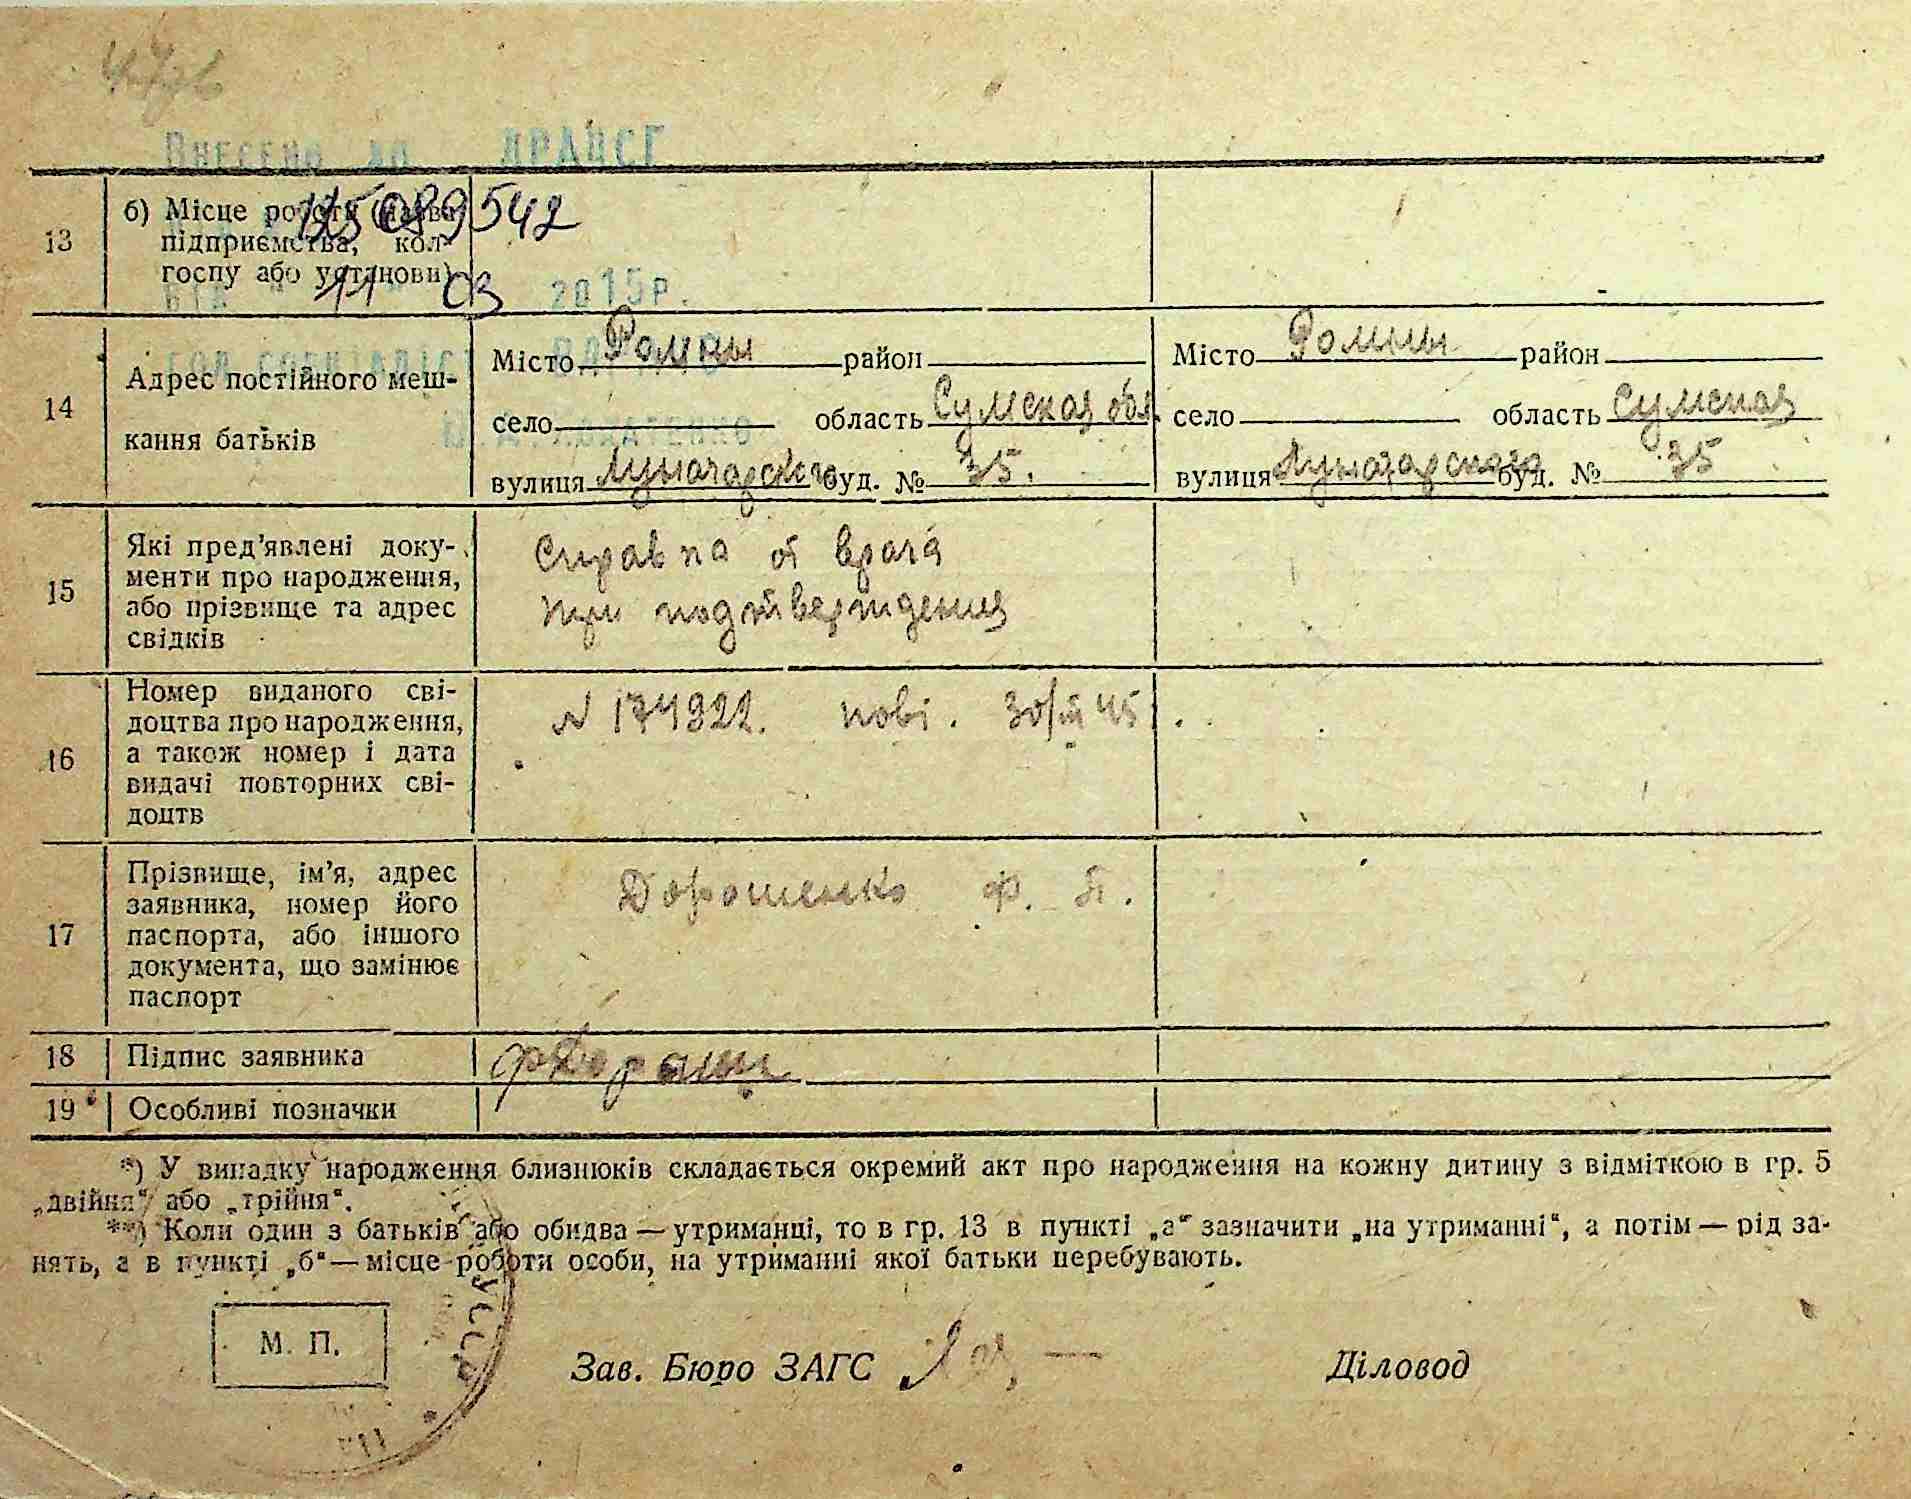 Внесено до ДРАЦСГ
13
б) Місце роботи (назва
підприємства, кол-
госпу або установи)
089542
11 03 2015р.
14
Адрес постійного меш-
кання батьків
Місто Ромны район
село область Сумская обл.
вулиця Луначарского буд. № 35.
Місто Ромны район
село область Сумская
вулиця Луначарского буд. № 35
15
Які пред'явлені доку-
менти про народження,
або прізвище та адрес
свідків
Справка от врача
при подтверждения
16
Номер виданого сві-
доцтва про народження,
а також номер і дата
видачі повторних сві-
доцтв
N 174922. 45
17
Прізвище, ім'я, адрес
заявника, номер його
паспорта, або іншого
документа, що замінює
паспорт
Дорошенко Ф. П.
18
Підпис заявника
фДорош
19
Особливі позначки
*) У випадку народження близнюків складається окремий акт про народження на кожну дитину з відміткою в гр. 5
„двійня“ або „трійня“.
**) Коли один з батьків або обидва — утриманці, то в гр. 13 в пункті „а“ зазначити „на утриманні“, а потім — рід за-
нять, а в пункті „б“ — місце роботи особи, на утриманні якої батьки перебувають.
М. П.
УССР
Зав. Бюро ЗАГС
Діловод